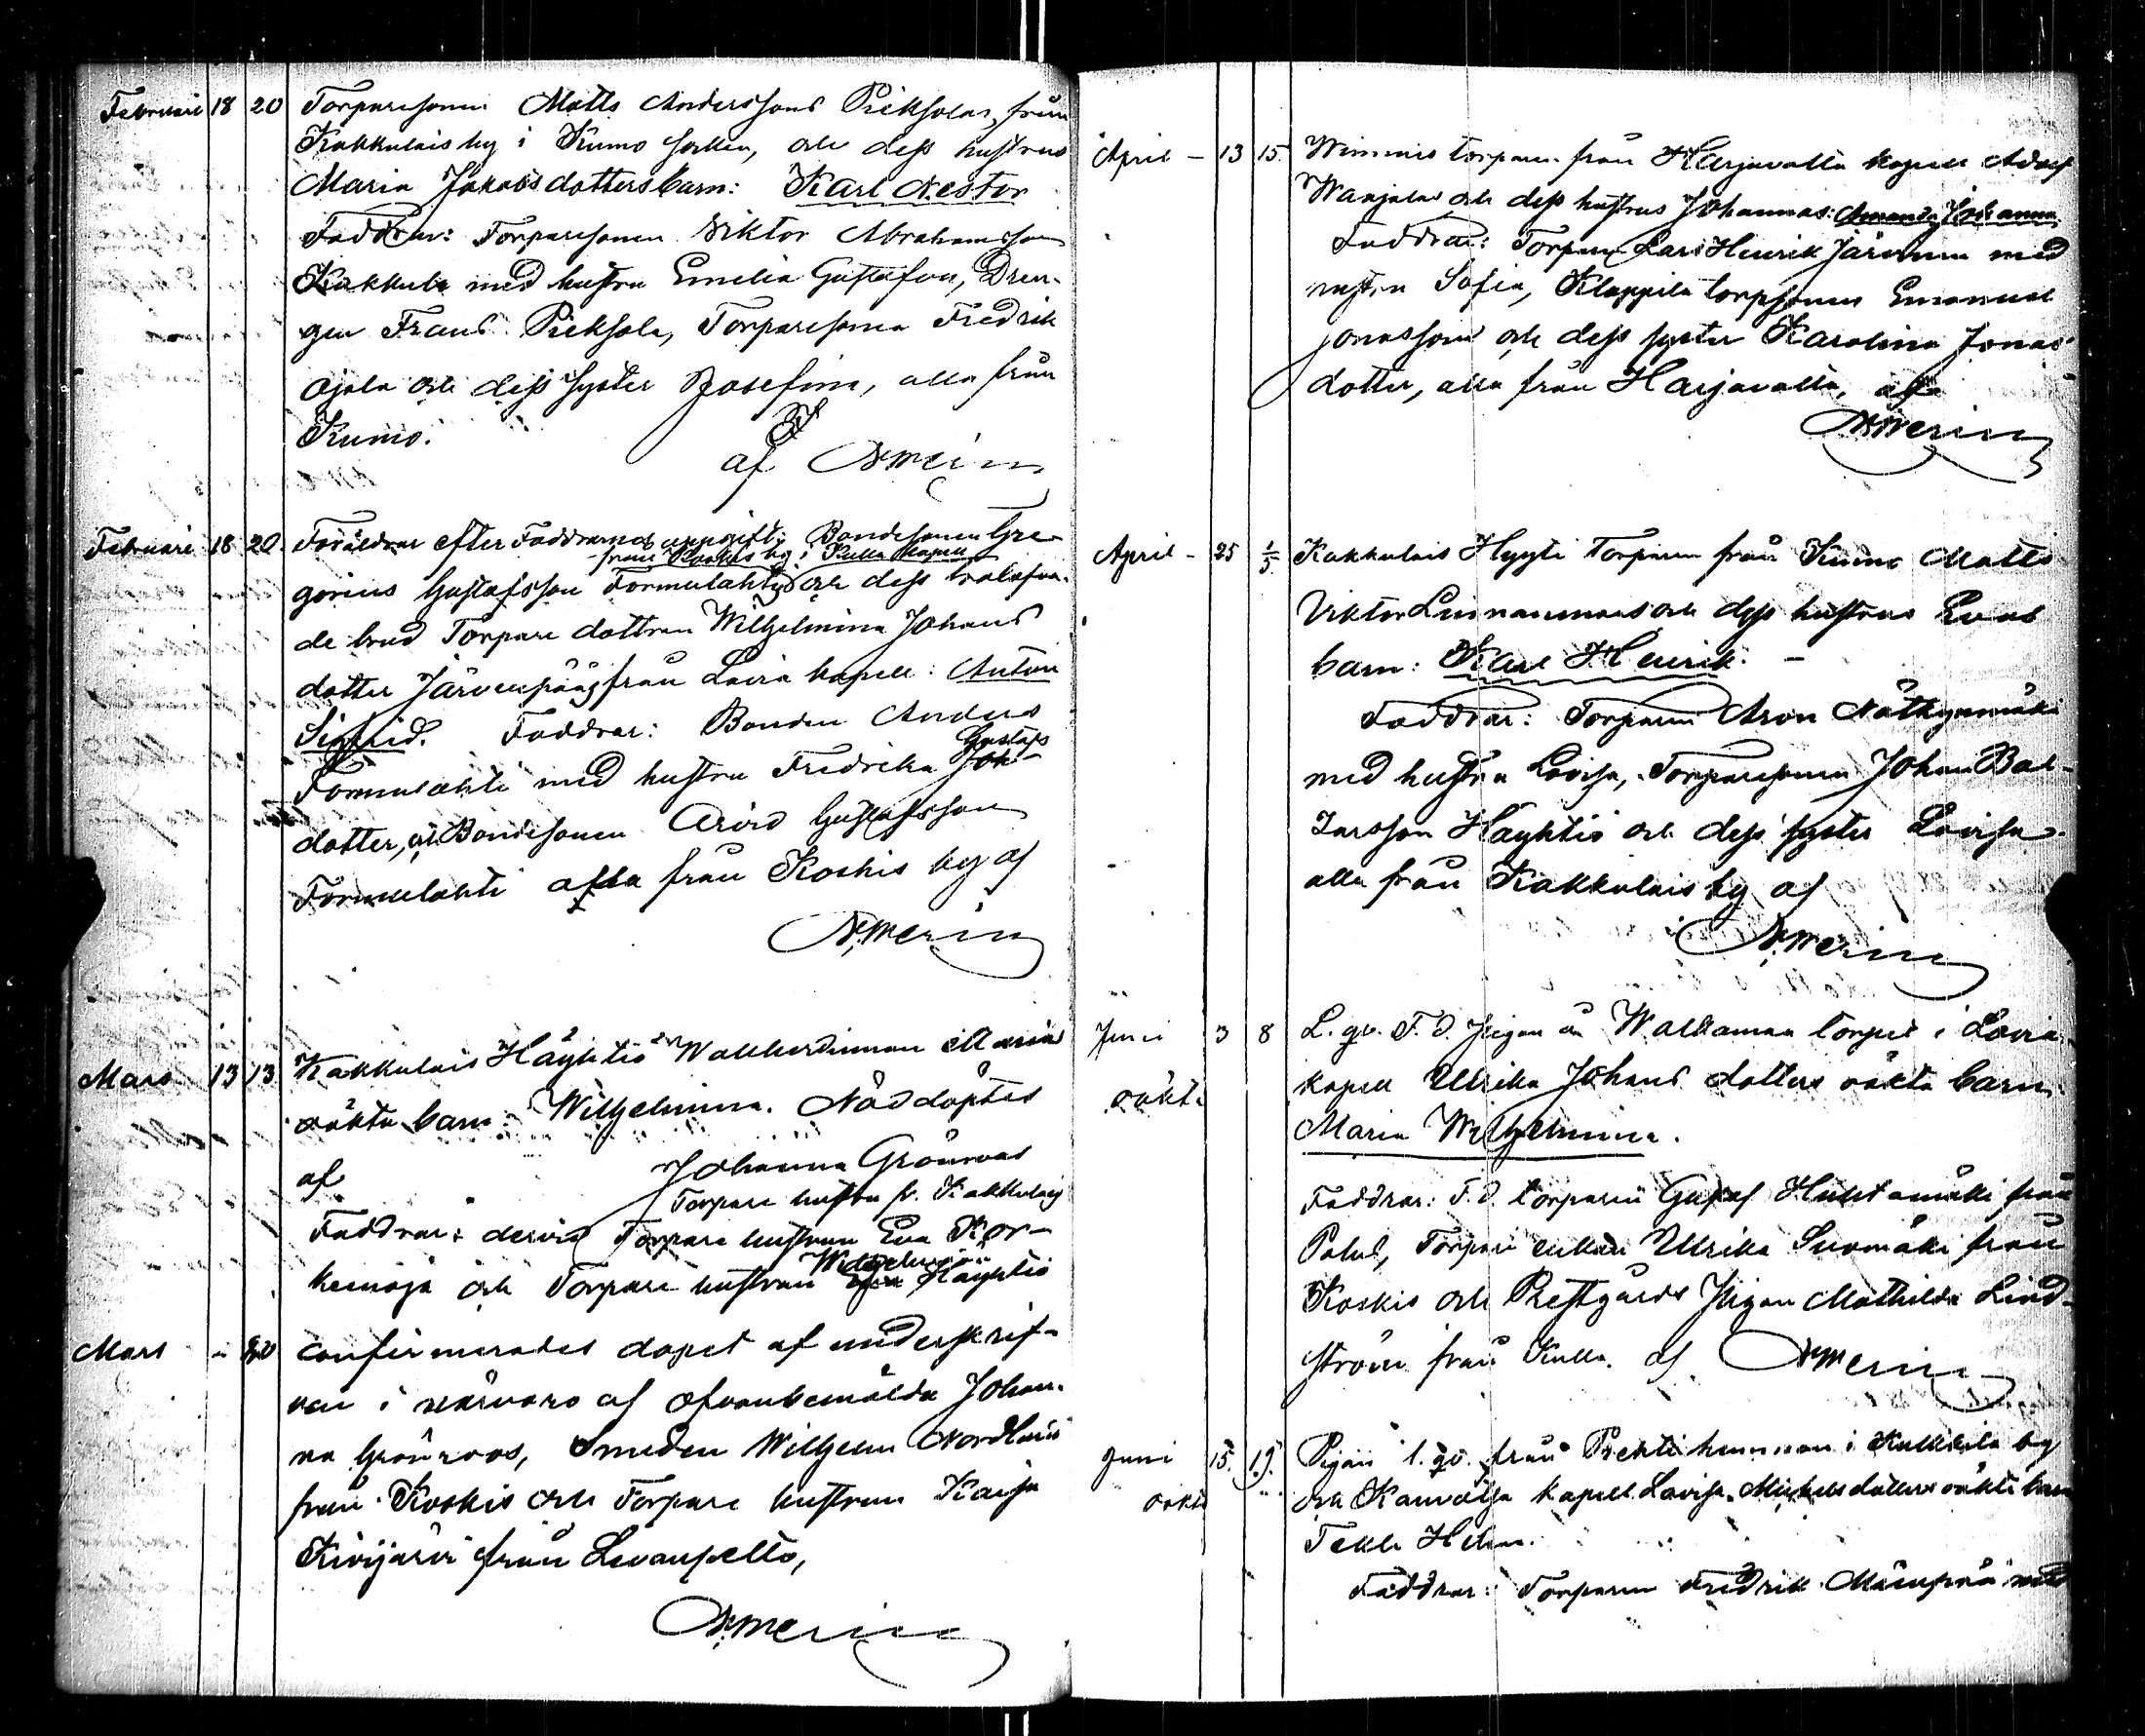 Februari 18 20 Torparesonen Matts Anderssons Pieksolas, från
Kakkulais by i Kumo socken, och dess hustrus
Maria Jakobsdotters barn: Karl Nestor
Faddrar: Torparesonen Viktor Abrahamsson
Kakkula med hustru Emelia Gustafsson, Dren-
gen Frans Pieksola, Torparesonen Fredrik
Ojala och dess syster Josefina, alla från
Kumo.
af N Merin
Februari 18 20 Föräldrar efter Faddrarnas uppgift: Bondesonen Gre-
från Koskis by i Kulla kapell
gorius Gustafsson Tormulahti och dess trolofva-
de brud Torpare dottren Wilhelmina Johans
dotter Järvenpää från Lavia kapell: Anton
Sigfrid. Faddrar: Bonden Anders
Gustafs
Tormulahti med hustru Fredrika Joh-
dotter, och Bondesonen Arvid Gustafsson
Tormulahti alla från Koskis by af
N. Merin
Mars 13 13 Kakkulais Häyhtiö Maria
oäkta barn: Wilhelmina. Nöddöptes
af Johanna Grönroos
Torpare hustru fr. Kakkulais
Faddrar: dervid Torpare hustrun Eva Kor-
Wilhelmina
kemoja och Torpare hustrun Häyhtiö
Mars - 20 confirmerades dopet af underskrif-
ven i närvaro af ofvanbemälda Johan-
na Grönroos, Smeden Wilhelm Nordlund
från Koskis och Torpare hustrun Kaisa
Kivijärvi från Levanpelto,
N. Merin
April - 13 15. Wimmis torparen från Harjavalta kapell Adolf
Warjalas och dess hustrus Johannas: Amanda Johanna
Faddrar: Torparen Lars Henrik Järvinen med
hustru Sofia, Klappila torpsonen Emanuel
Jonasson och dess syster Karolina Jonas
dotter, alla från Harjavalta, af
N. Merin
April - 25 1/5 Kakkulais Hyyti Torparen från Kumo Matts
Viktor och dess hustrus Evas
barn: Karl Henrik. -
Faddrar: Torparen Aron Näthynmäki
med hustru Lovisa, Torparesonen Johan Bal-
tarsson Häyhtiö och dess syster Lovisa
alla från Kakkulais by af
N. Merin
Juni 3 8 L. gv. F. d. Pigan ån Waltamaa torpet i Lavia
oäkta kapell Ulrika Johans dotters oäkta barn
Maria Wilhelmina.
Faddrar: F. d. torparen Gustaf Huhtamäki från
Palus, Torpare enkan Ulrika Suomäki från
Koskis och Prestgårds Pigan Mathilda Lind-
ström från Kulla. af N Merin
Juni 15. 19. Pigan l. gv. från Prehti hemman i Kukkila by
oäkta och Kauvatsa kapell Lovisa Mickelsdotters oäkta barn
Tekla Helena.
Faddrar: Torparen Fredrik Mäenpää med